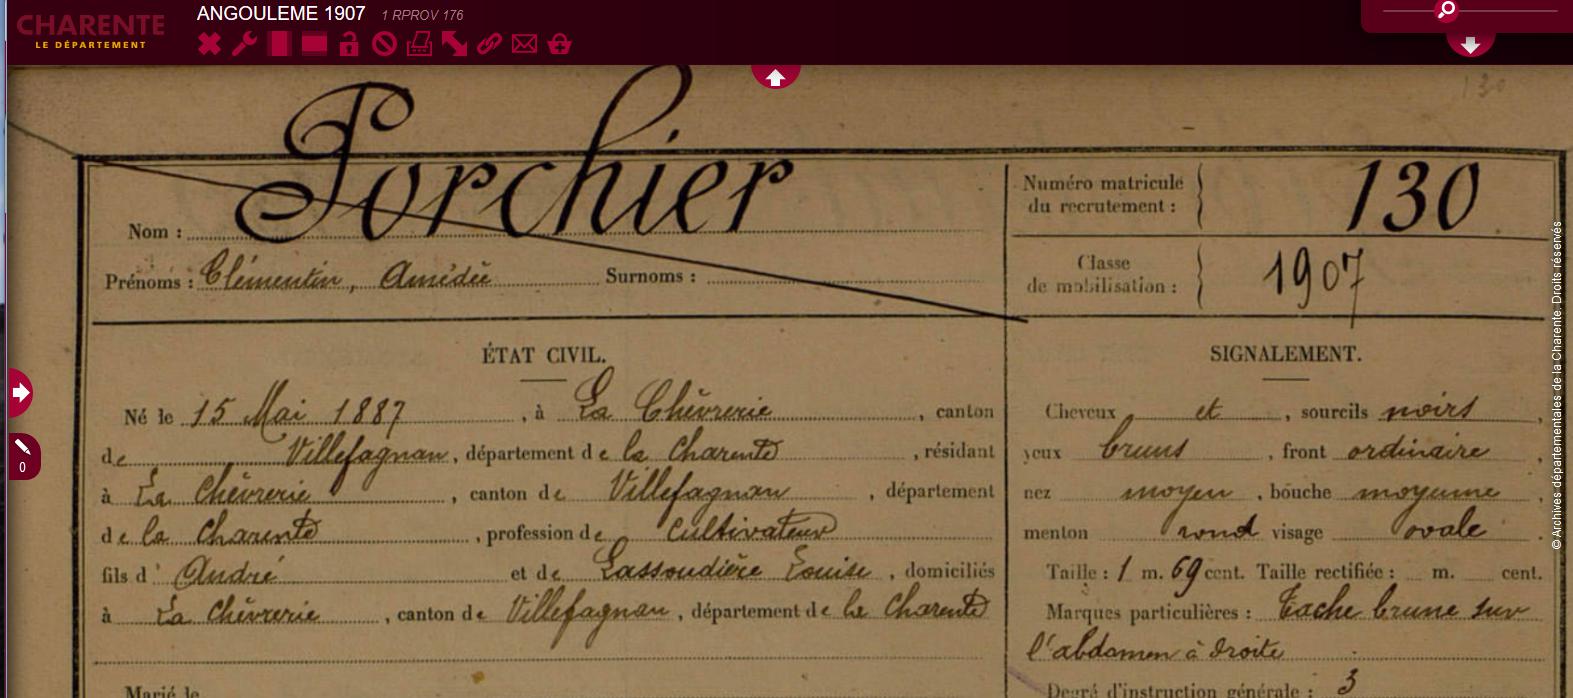 CHARENTE
LE DÉPARTEMENT
ANGOULEME 1907 1 RPROV 176
130
Nom : Porchier
Prénoms : Clémentin, Amédée Surnoms :
Numéro matricule du recrutement : 130
Classe de mobilisation : 1907
ÉTAT CIVIL.
Né le 15 Mai 1887, à La Chèvrerie, canton
de Villefagnan, département de la Charente, résidant
à La Chèvrerie, canton de Villefagnan, département
de la Charente, profession de Cultivateur
fils d' André et de Lassoudière Louise, domiciliés
à La Chèvrerie, canton de Villefagnan, département de la Charente
Marié le
SIGNALEMENT.
Cheveux et, sourcils noirs,
yeux bruns, front ordinaire,
nez moyen, bouche moyenne,
menton rond visage ovale.
Taille : 1 m. 69 cent. Taille rectifiée : m. cent.
Marques particulières : Tache brune sur
l'abdomen à droite
Degré d'instruction générale : 3
0
© Archives départementales de la Charente. Droits réservés